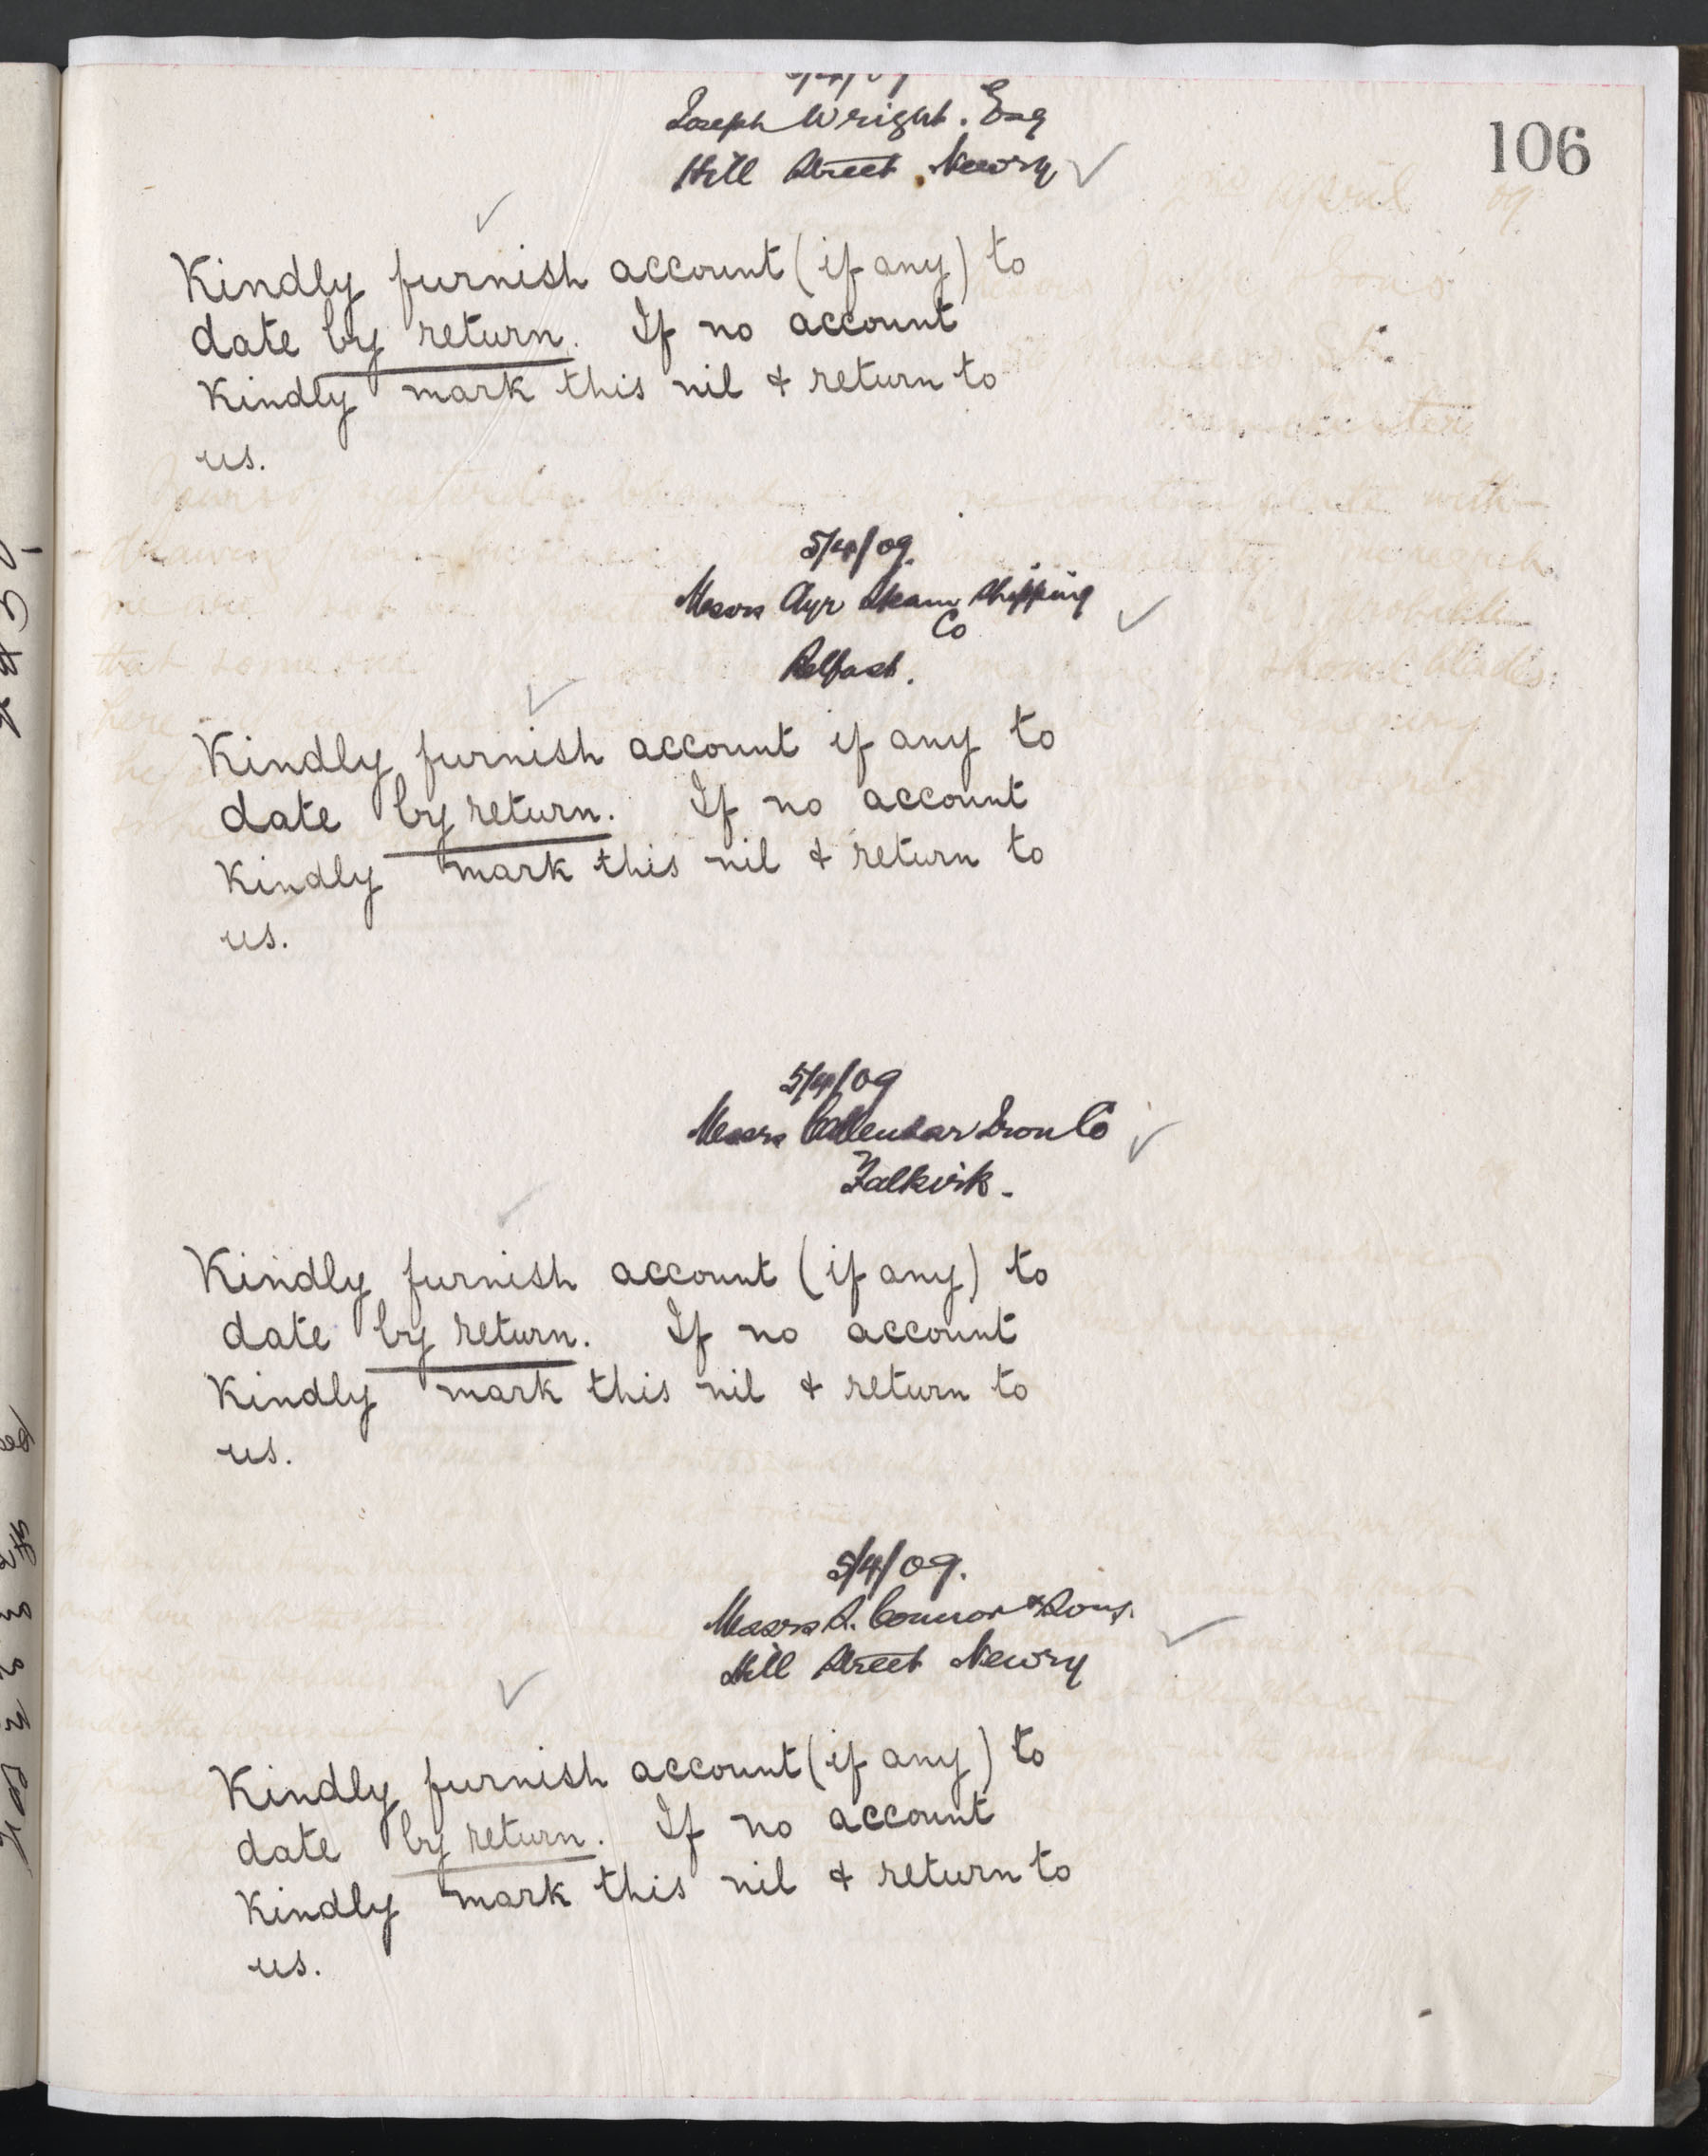 106
Joseph Wright. Esq
Hill Street, Newry
Kindly furnish account (if any) to
date by return. If no account
Kindly mark this nil & return to
us.
5/4/09.
Messrs Ayr Steam Shipping
Co
Belfast.
Kindly furnish account if any to
date by return. If no account
Kindly mark this nil & return to
us.
5/4/09
Messrs Callendar Iron Co
Falkirk.
Kindly furnish account (if any) to
date by return. If no account
Kindly mark this nil & return to
us.
5/4/09.
Messrs S. Connor & Sons.
Hill Street Newry
Kindly furnish account (if any) to
date by return. If no account
Kindly mark this nil & return to
us.